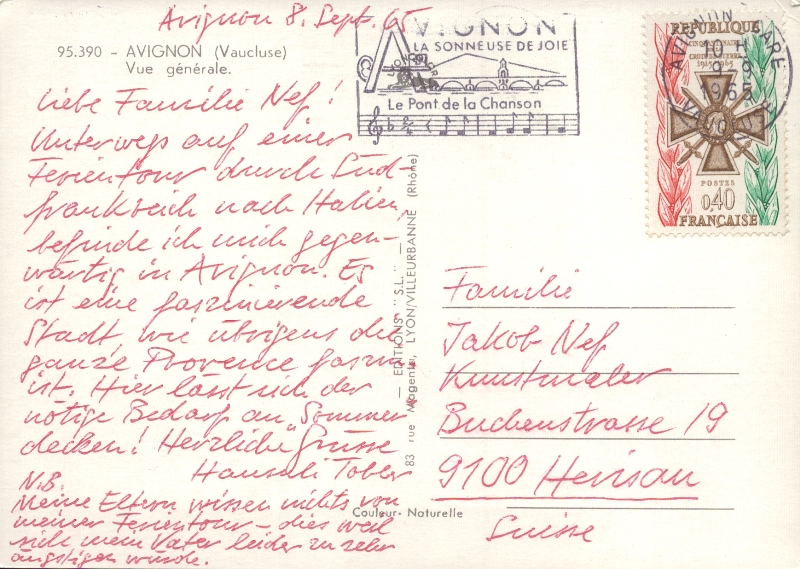 Avignon 8. Sept. 65
95.390 - AVIGNON (Vaucluse)
Vue générale.
Liebe Familie Nef!
Unterwegs auf einer
Ferientour durch Süd-
frankreich nach Italien,
befinde ich mich gegen-
wärtig in Avignon. Es
ist eine faszinierende
Stadt, wie übrigens die
ganze Provence
ist. Hier lässt sich der
nötige Bedarf an „Sommer
decken! Herzliche Grüsse
Hansueli Tobler
N.B.
Meine Eltern wissen nichts von
meiner Ferientour – dies weil
sich mein Vater leider zu sehr
ängstigen würde.
AVIGNON
LA SONNEUSE DE JOIE
Le Pont de la Chanson
AVIGNON GARE
1965
VAUCLUSE
REPUBLIQUE
CINQUANTENAIRE
CROIX DE GUERRE
1915-1965
POSTES
0,40
FRANÇAISE
— EDITIONS "S.L." —
83 rue Magenta, LYON/VILLEURBANNE (Rhône)
Couleur Naturelle
Familie
Jakob Nef
Kunstmaler
Buchenstrasse 19
9100 Herisau
Suisse